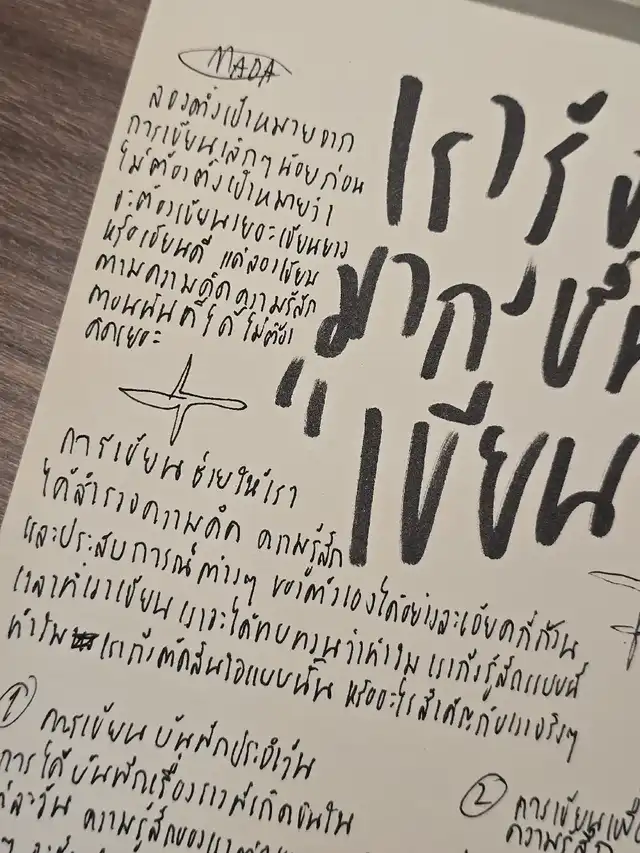 MADA
ลองตั้งเป้าหมายจาก
การเขียนเล็กๆน้อยก่อน
ไม่ต้องตั้งเป้าหมายว่า
จะต้องเขียนเยอะเขียนยาว
หรือเขียนดี แค่ลองเขียน
ตามความคิด ความรู้สึก
ตอนนั้นก็ได้ ไม่ต้อง
คิดเยอะ
เรารู้
มากขึ้น
"เขียน
การเขียน ช่วยให้เรา
ได้สำรวจความคิด ความรู้สึก
และประสบการณ์ต่างๆ ของตัวเองได้อย่างละเอียดถี่ถ้วน
เวลาที่เราเขียน เราจะได้ทบทวนว่าทำไม เราถึงรู้สึกแบบนี้
ทำไม เราถึงตัดสินใจแบบนั้น หรืออะไรสำคัญกับเราจริงๆ
① การเขียน บันทึกประจำวัน
การได้บันทึกเรื่องราวที่เกิดขึ้นใน
ความรู้สึกของเรา
② การเขียนเพื่อ
ความรู้สึก